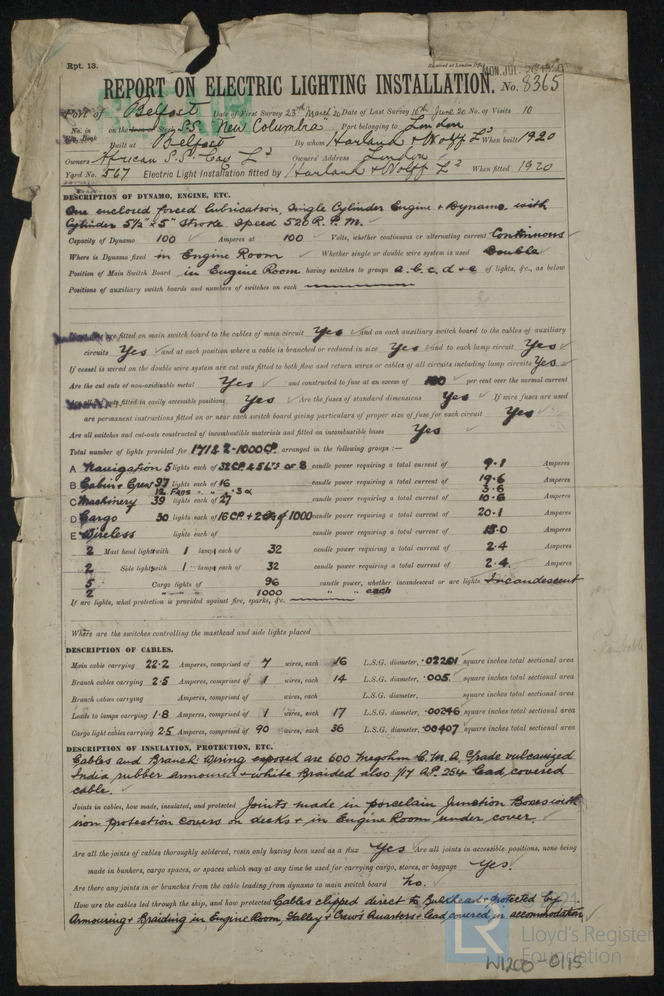 Rpt. 13.
Received at London Office MON. JUL. 26 1920
REPORT ON ELECTRIC LIGHTING INSTALLATION. No. 8365
Port of Belfast Date of First Survey 23rd March 20 Date of Last Survey 16th June 20 No. of Visits 10
No. in on the Iron or Steel S.S. New Columbia Port belonging to London
Reg. Book Built at Belfast By whom Harland & Wolff Ld When built 1920
Owners African S.S. Coy Ld Owners' Address London
Yard No. 567 Electric Light Installation fitted by Harland & Wolff Ld When fitted 1920
DESCRIPTION OF DYNAMO, ENGINE, ETC.
One enclosed forced lubrication, Single Cylinder Engine & Dynamo with
Cylinder 5½" x 5" Stroke Speed 520 R.P.M.
Capacity of Dynamo 100 Amperes at 100 Volts, whether continuous or alternating current Continuous
Where is Dynamo fixed in Engine Room Whether single or double wire system is used Double
Position of Main Switch Board in Engine Room having switches to groups a. b. c. d & e of lights, &c., as below
Positions of auxiliary switch boards and numbers of switches on each
are fitted on main switch board to the cables of main circuit Yes and on each auxiliary switch board to the cables of auxiliary
circuits Yes and at each position where a cable is branched or reduced in size Yes and to each lamp circuit Yes
If vessel is wired on the double wire system are cut outs fitted to both flow and return wires or cables of all circuits including lamp circuits Yes
Are the cut outs of non-oxidizable metal Yes and constructed to fuse at an excess of 100 per cent over the normal current
Are all cut outs fitted in easily accessible positions Yes Are the fuses of standard dimensions Yes If wire fuses are used
are permanent instructions fitted on or near each switch board giving particulars of proper size of fuse for each circuit Yes
Are all switches and cut-outs constructed of incombustible materials and fitted on incombustible bases Yes
Total number of lights provided for 171 & 2-1000 CP. arranged in the following groups :—
A Navigation 5 lights each of 32 CP & 5 L's of 8 candle power requiring a total current of 9.1 Amperes
B Cabin & Crew 97 lights each of 16 candle power requiring a total current of 19.6 Amperes
12 Fans " " .3 a 3.6
C Machinery 39 lights each of 27 candle power requiring a total current of 10.6 Amperes
D Cargo 30 lights each of 16 CP + 2 of 1000 candle power requiring a total current of 20.1 Amperes
E Wireless lights each of candle power requiring a total current of 15.0 Amperes
2 Mast head lights with 1 lamps each of 32 candle power requiring a total current of 2.4 Amperes
2 Side lights with 1 lamps each of 32 candle power requiring a total current of 2.4 Amperes
5 Cargo lights of 96 candle power, whether incandescent or arc lights Incandescent
2 " " 1000 " " each
If arc lights, what protection is provided against fire, sparks, &c.
Where are the switches controlling the masthead and side lights placed
DESCRIPTION OF CABLES.
Main cable carrying 22.2 Amperes, comprised of 7 wires, each 16 L.S.G. diameter, .02201 square inches total sectional area
Branch cables carrying 2.5 Amperes, comprised of 1 wires, each 14 L.S.G. diameter, .005 square inches total sectional area
Branch cables carrying Amperes, comprised of wires, each L.S.G. diameter, square inches total sectional area
Leads to lamps carrying 1.8 Amperes, comprised of 1 wires, each 17 L.S.G. diameter, .00246 square inches total sectional area
Cargo light cables carrying 2.5 Amperes, comprised of 90 wires, each 36 L.S.G. diameter, .00407 square inches total sectional area
DESCRIPTION OF INSULATION, PROTECTION, ETC.
Cables and Branch Wiring exposed are 600 Megohm C.M.A. Grade vulcanized
India rubber armoured & white Braided also 1/17 A.P. 254 lead covered
cable.
Joints in cables, how made, insulated, and protected Joints made in porcelain Junction Boxes with
iron protection covers on decks & in Engine Room under cover.
Are all the joints of cables thoroughly soldered, resin only having been used as a flux Yes Are all joints in accessible positions, none being
made in bunkers, cargo spaces, or spaces which may at any time be used for carrying cargo, stores, or baggage Yes.
Are there any joints in or branches from the cable leading from dynamo to main switch board No.
How are the cables led through the ship, and how protected Cables clipped direct to Bulkhead & protected by
Armouring & Braiding in Engine Room, Galley & Crew's Quarters & Lead covered in accommodation
LR Lloyd's Register
Foundation
W1200-0115